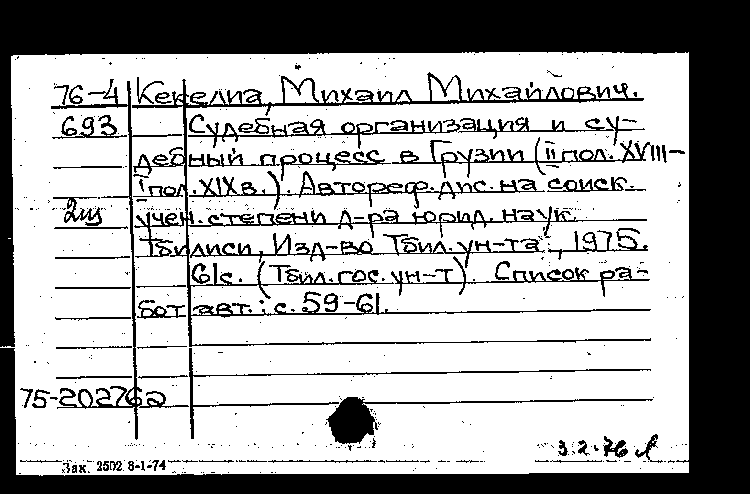 76-4 Кекелиа, Михаил Михайлович.
693 Судебная организация и су-
дебный процесс в Грузии (II пол. XVIII-
I пол. XIX в.). Автореф. дис. на соиск.
2из учен. степени д-ра юрид. наук.
Тбилиси, Изд-во Тбил. ун-та, 1975.
61с. (Тбил. гос. ун-т). Список ра-
бот авт.: с. 59-61.
75-20276а
3.2.76
Зак. 2502 8-1-74